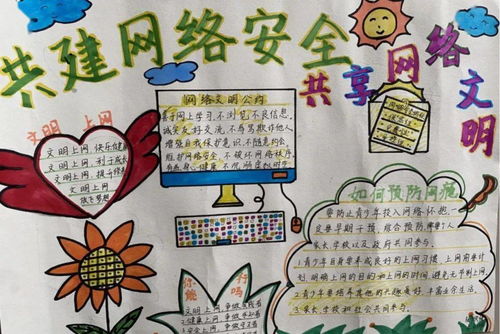 共建网络安全
共享网络文明
文明上网
文明上网,快乐健康
文明上网,利于成长
文明上网
放飞梦想
网络文明公约
要善于网上学习,不浏览不良信息
诚实友好交流,不侮辱欺诈他人
增强自我保护意识,不随意约会
维护网络安全,不破坏网络秩序
有益身心健康,不沉溺虚拟时空
如何预防网瘾
要防止青少年投入网络怀抱,
家长、学校以及政府共同参与。
1.青少年自身要养成良好的上网习惯,上网前要计
划,明确上网的目的和上网的时间,避免无节制上网。
2.青少年要培养其他的兴趣爱好,丰富业余生活。
3.家长、学校和社会共同参与。
你能行吗